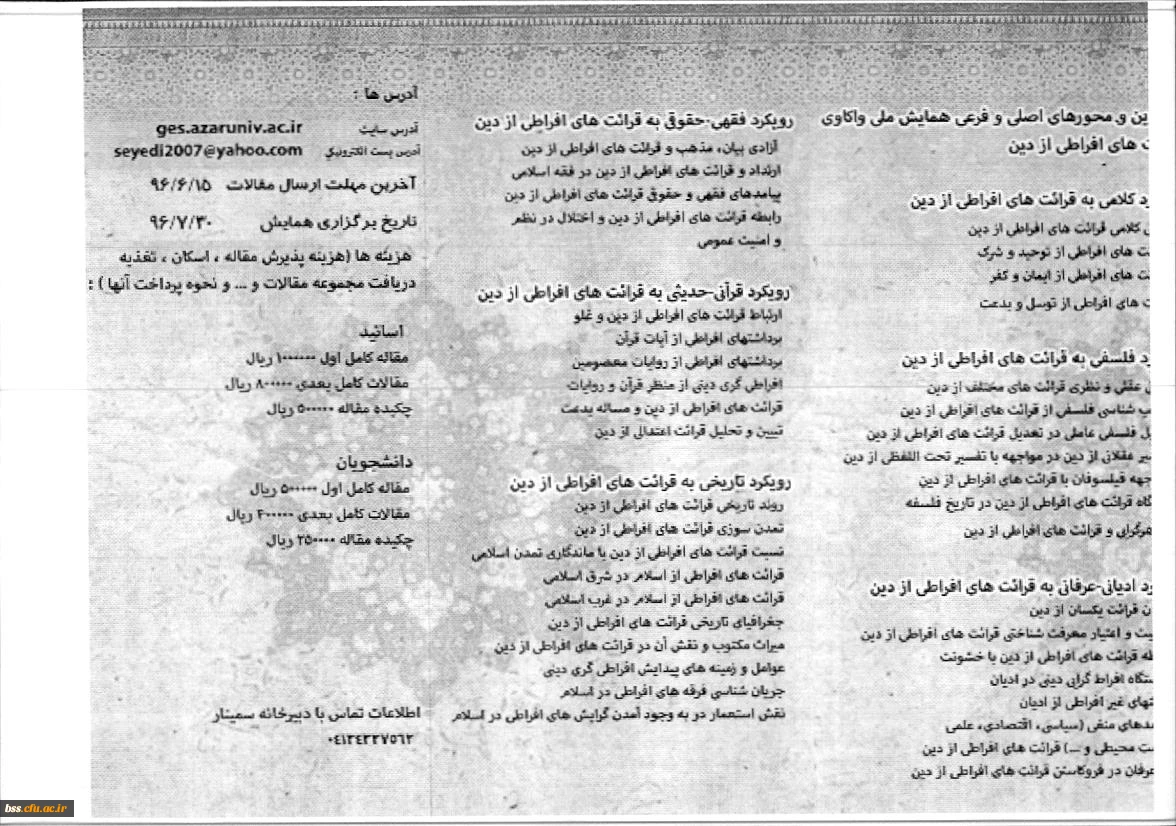 ین و محورهای اصلی و فرعی همایش ملی واکاوی
ت های افراطی از دین
د کلامی به قرائت های افراطی از دین
ی کلامی قرائت های افراطی از دین
ت های افراطی از توحید و شرک
ت های افراطی از ایمان و کفر
ت های افراطی از توسل و بدعت
د فلسفی به قرائت های افراطی از دین
ی عقلی و نظری قرائت های مختلف از دین
ب شناسی فلسفی از قرائت های افراطی از دین
ل فلسفی عاملی در تعدیل قرائت های افراطی از دین
یر عقلانی از دین در مواجهه با تفسیر تحت اللفظی از دین
جهه فیلسوفان با قرائت های افراطی از دین
گاه قرائت های افراطی از دین در تاریخ فلسفه
هرگرایی و قرائت های افراطی از دین
د ادیانی-عرفانی به قرائت های افراطی از دین
ن قرائت یکسان از دین
یت و اعتبار معرفت شناختی قرائت های افراطی از دین
طه قرائت های افراطی از دین با خشونت
ستگاه افراط گرایی دینی در ادیان
تهای غیر افراطی از ادیان
مدهای منفی (سیاسی، اقتصادی، علمی
ست محیطی و ...) قرائت های افراطی از دین
عرفان در فروکاستن قرائت های افراطی از دین
رویکرد فقهی-حقوقی به قرائت های افراطی از دین
آزادی بیان، مذهب و قرائت های افراطی از دین
ارتداد و قرائت های افراطی از دین در فقه اسلامی
پیامدهای فقهی و حقوقی قرائت های افراطی از دین
رابطه قرائت های افراطی از دین و اختلال در نظم
و امنیت عمومی
رویکرد قرآنی-حدیثی به قرائت های افراطی از دین
ارتباط قرائت های افراطی از دین و غلو
برداشتهای افراطی از آیات قرآن
برداشتهای افراطی از روایات معصومین
افراطی گری دینی از منظر قرآن و روایات
قرائت های افراطی از دین و مساله بدعت
تبیین و تحلیل قرائت اعتدالی از دین
رویکرد تاریخی به قرائت های افراطی از دین
روند تاریخی قرائت های افراطی از دین
تمدن سوزی قرائت های افراطی از دین
نسبت قرائت های افراطی از دین با ماندگاری تمدن اسلامی
قرائت های افراطی از اسلام در شرق اسلامی
قرائت های افراطی از اسلام در غرب اسلامی
جغرافیای تاریخی قرائت های افراطی از دین
میراث مکتوب و نقش آن در قرائت های افراطی از دین
عوامل و زمینه های پیدایش افراطی گری دینی
جریان شناسی فرقه های افراطی در اسلام
نقش استعمار در به وجود آمدن گرایش های افراطی در اسلام
آدرس ها :
آدرس سایت ges.azaruniv.ac.ir
آدرس پست الکترونیکی seyedi2007@yahoo.com
آخرین مهلت ارسال مقالات ۹۶/۶/۱۵
تاریخ برگزاری همایش ۹۶/۷/۳۰
هزینه ها (هزینه پذیرش مقاله ، اسکان ، تغذیه
دریافت مجموعه مقالات و ... و نحوه پرداخت آنها ) :
اساتید
مقاله کامل اول ۱۰۰۰۰۰۰ ریال
مقالات کامل بعدی ۸۰۰۰۰۰ ریال
چکیده مقاله ۵۰۰۰۰۰ ریال
دانشجویان
مقاله کامل اول ۵۰۰۰۰۰ ریال
مقالات کامل بعدی ۴۰۰۰۰۰ ریال
چکیده مقاله ۲۵۰۰۰۰ ریال
اطلاعات تماس با دبیرخانه سمینار
۰۴۱۳۴۳۲۷۵۶۲
bss.cfu.ac.ir